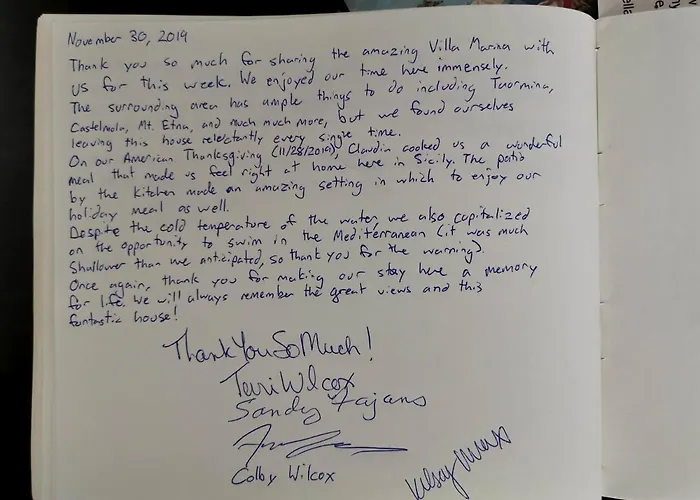 November 30, 2019
Thank you so much for sharing the amazing Villa Marina with
us for this week. We enjoyed our time here immensely.
The surrounding area has ample things to do including Taormina,
Castelmola, Mt. Etna, and much much more, but we found ourselves
leaving this house reluctantly every single time.
On our American Thanksgiving (11/28/2019), Claudia cooked us a wonderful
meal that made us feel right at home here in Sicily. The patio
by the kitchen made an amazing setting in which to enjoy our
holiday meal as well.
Despite the cold temperature of the water, we also capitalized
on the opportunity to swim in the Mediterranean (it was much
shallower than we anticipated, so thank you for the warning).
Once again, thank you for making our stay here a memory
for life. We will always remember the great views and this
fantastic house!
Thank You So Much!
Terri Wilcox
Sandy Fajans
Colby Wilcox